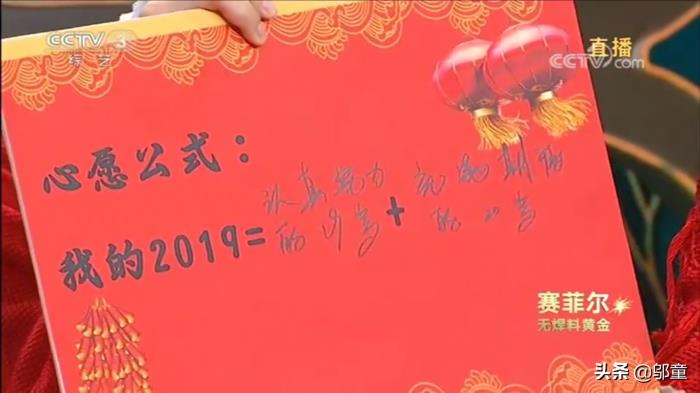 CCTV 3
综艺
直播
CCTV.com
心愿公式：
认真努力 充满期待
我的2019= 的19岁 + 的20岁
赛菲尔
无焊料黄金
头条 @邬童